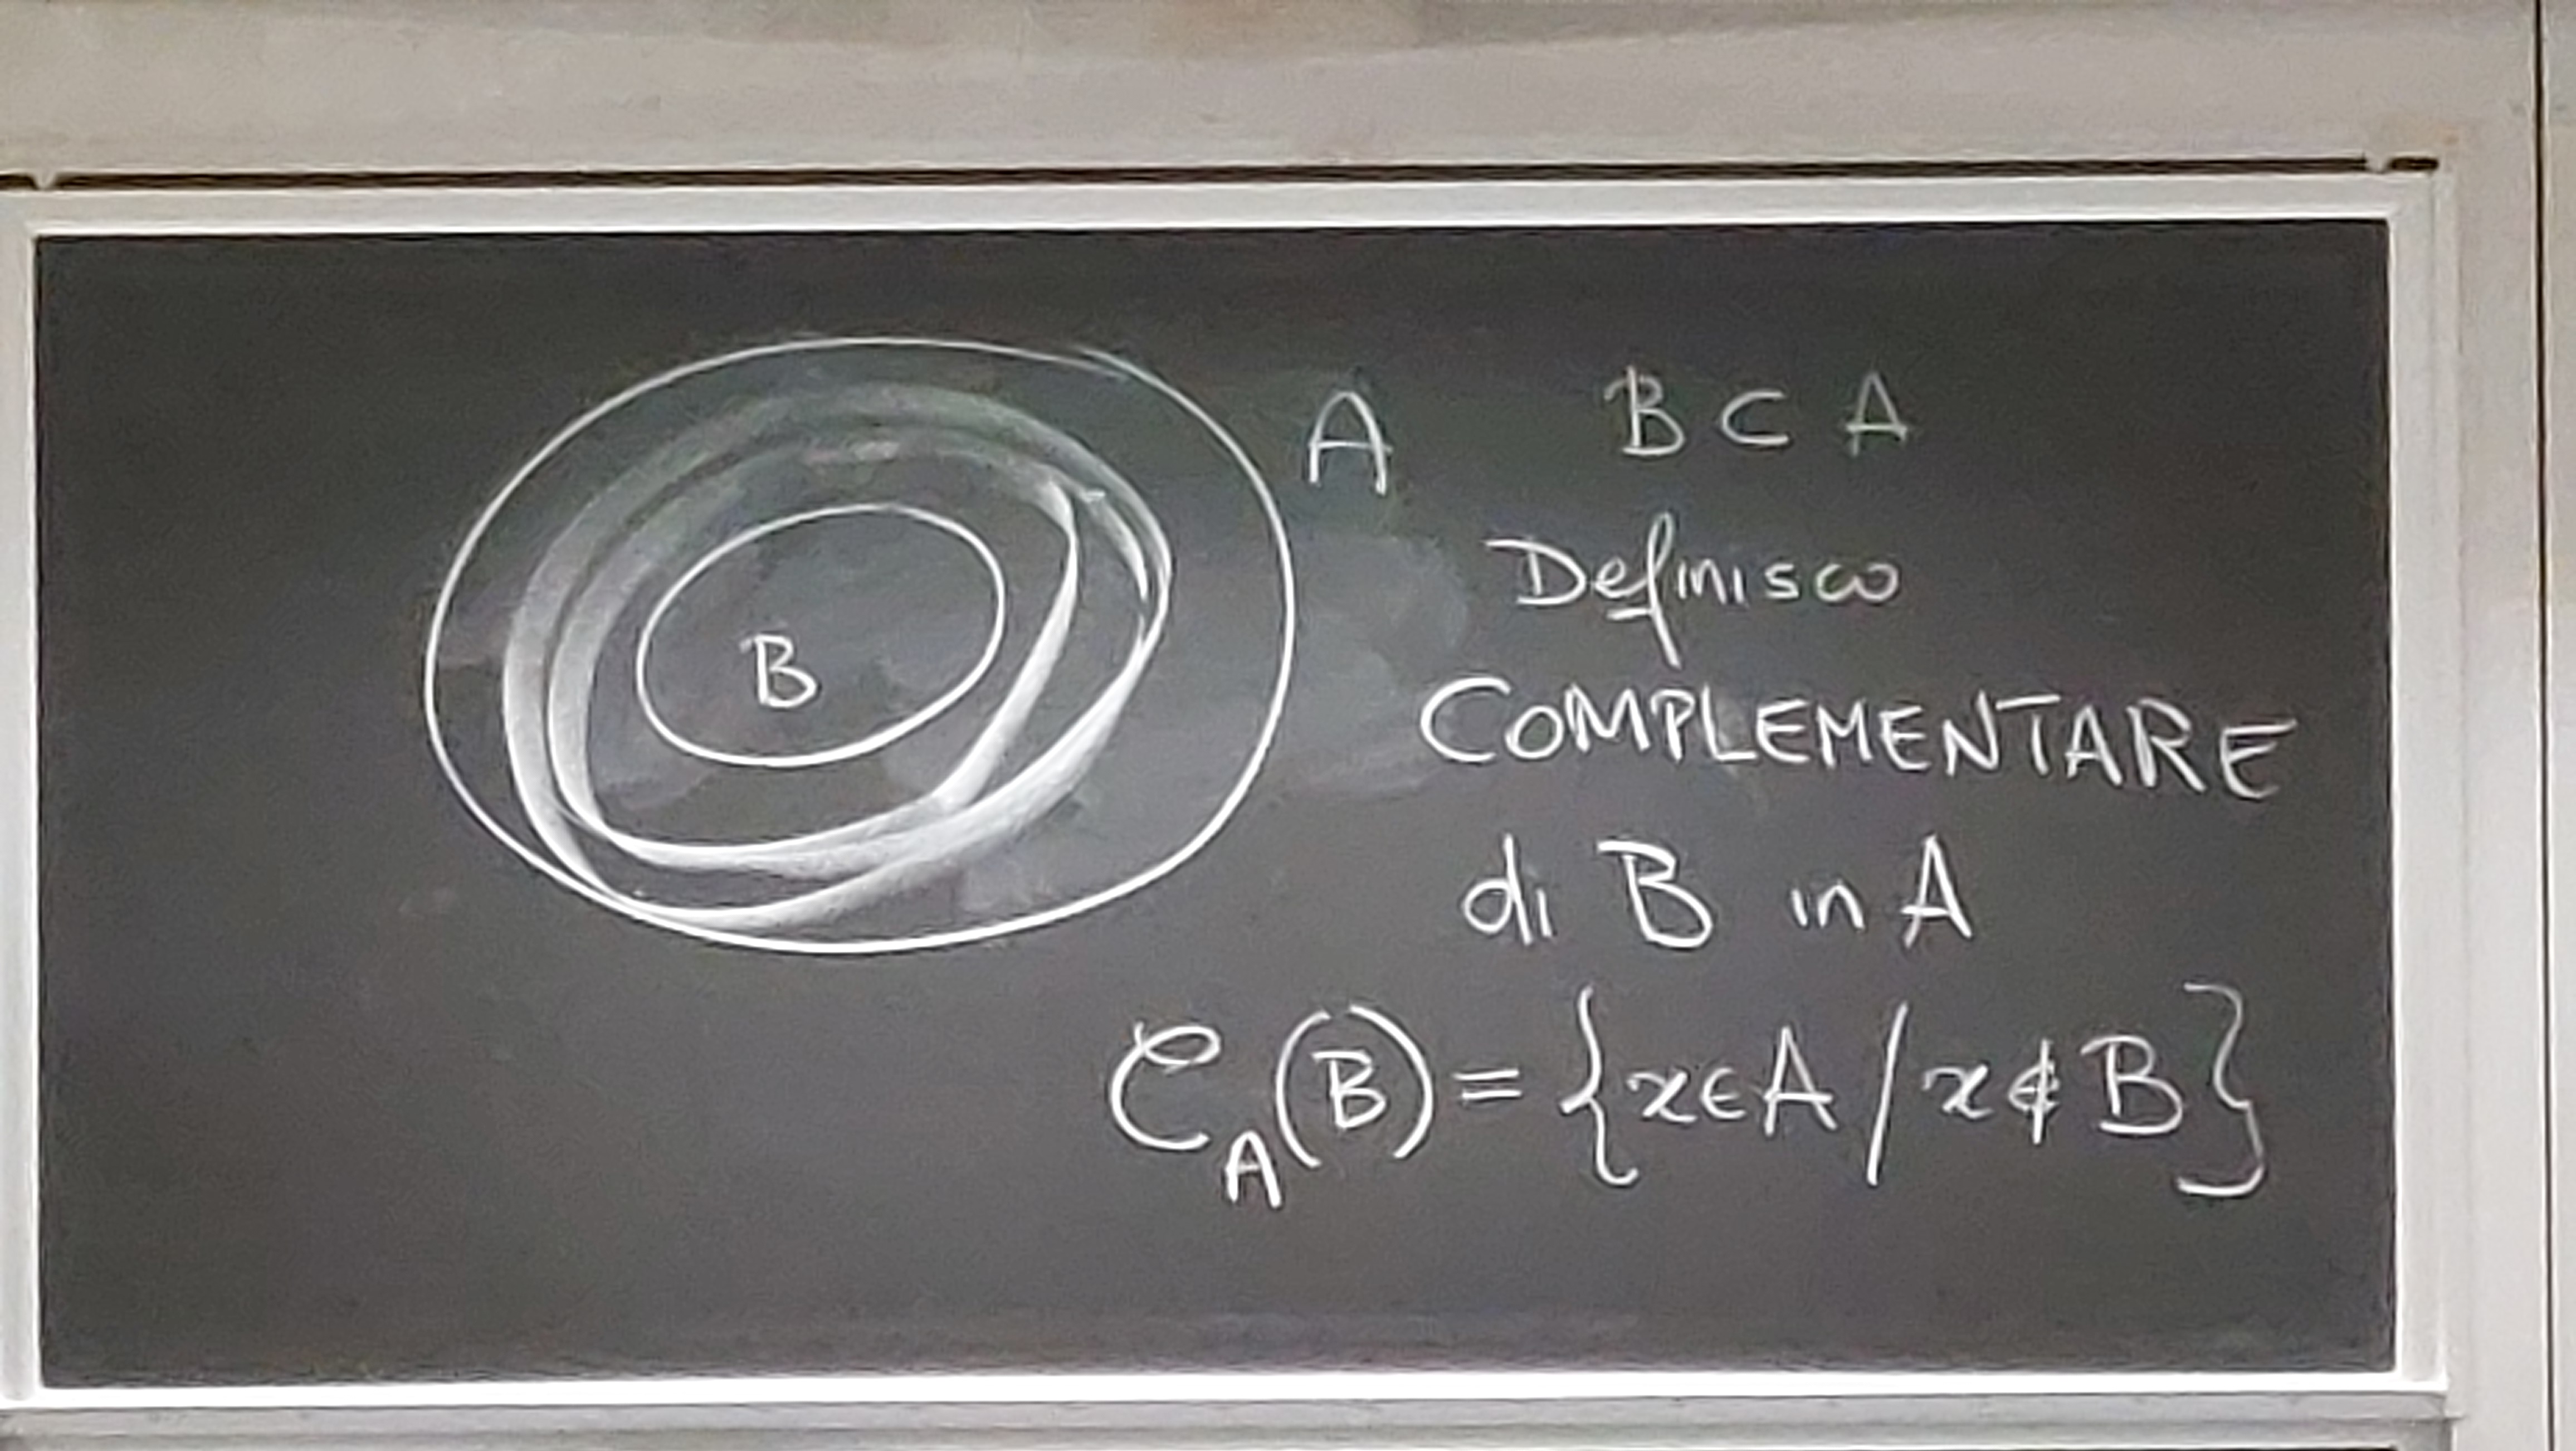 A B ⊂ A
B
Definisco
COMPLEMENTARE
di B in A
C_A(B) = {x ∈ A / x ∉ B}